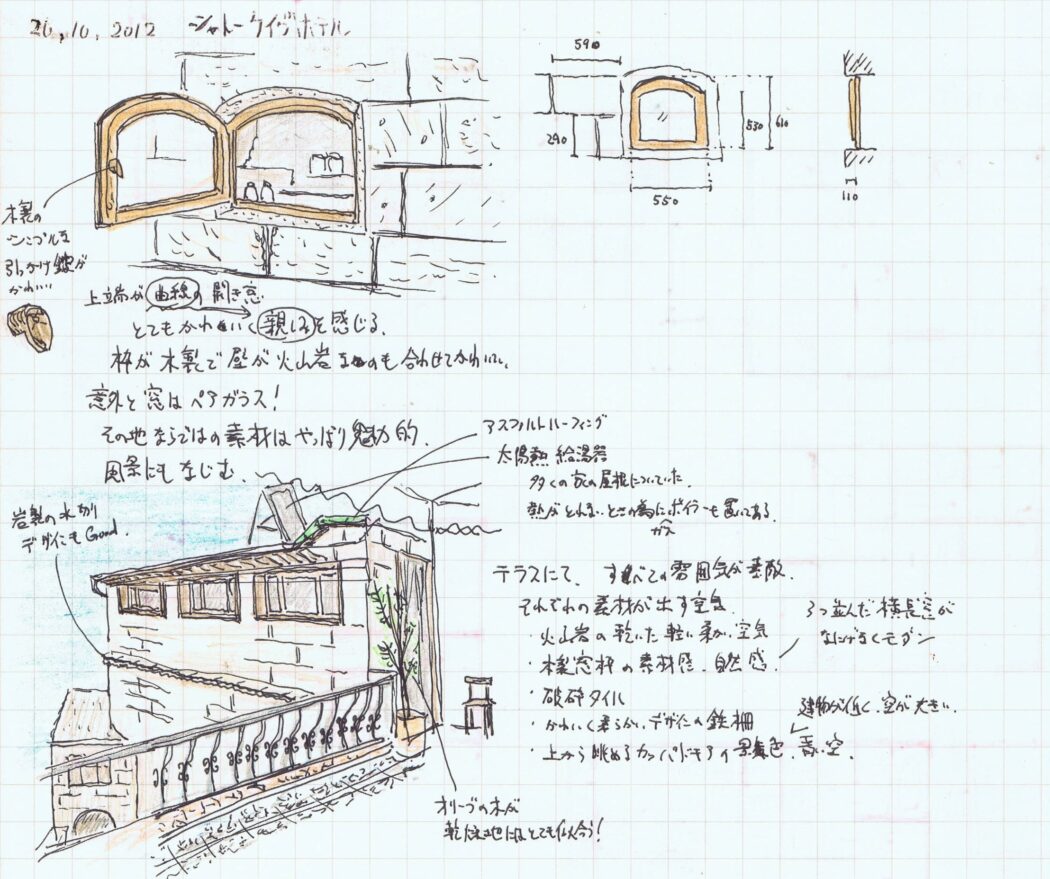 26, 10, 2012 シャトーケイヴホテル
590
290
530
610
550
110
木製の
シンプルな
引っかけ鍵が
かわいい
上端が曲線の開き窓
とてもかわいく親しみを感じる。
枠が木製で壁が火山岩なのも合わせてかわいい。
意外と窓はペアガラス!
その地ならではの素材はやっぱり魅力的。
風景にもなじむ。
アスファルトルーフィング
太陽熱給湯器
多くの家の屋根についていた。
熱がとれないときの為にボイラーも置いてある。
ガス
岩製の水切
デザインも Good.
テラスにて、すべての雰囲気が素敵。
それぞれの素材が出す空気
・火山岩の乾いた軽い柔かい空気
・木製窓枠の素材感、自然感
・破砕タイル
・かわいく柔らかいデザインの鉄柵
・上から眺めるカッパドキアの景色、青い空。
3つ並んだ横長窓が
なにげなくモダン
建物が低く、空が大きい。
オリーブの木が
乾燥地にはとても似合う!